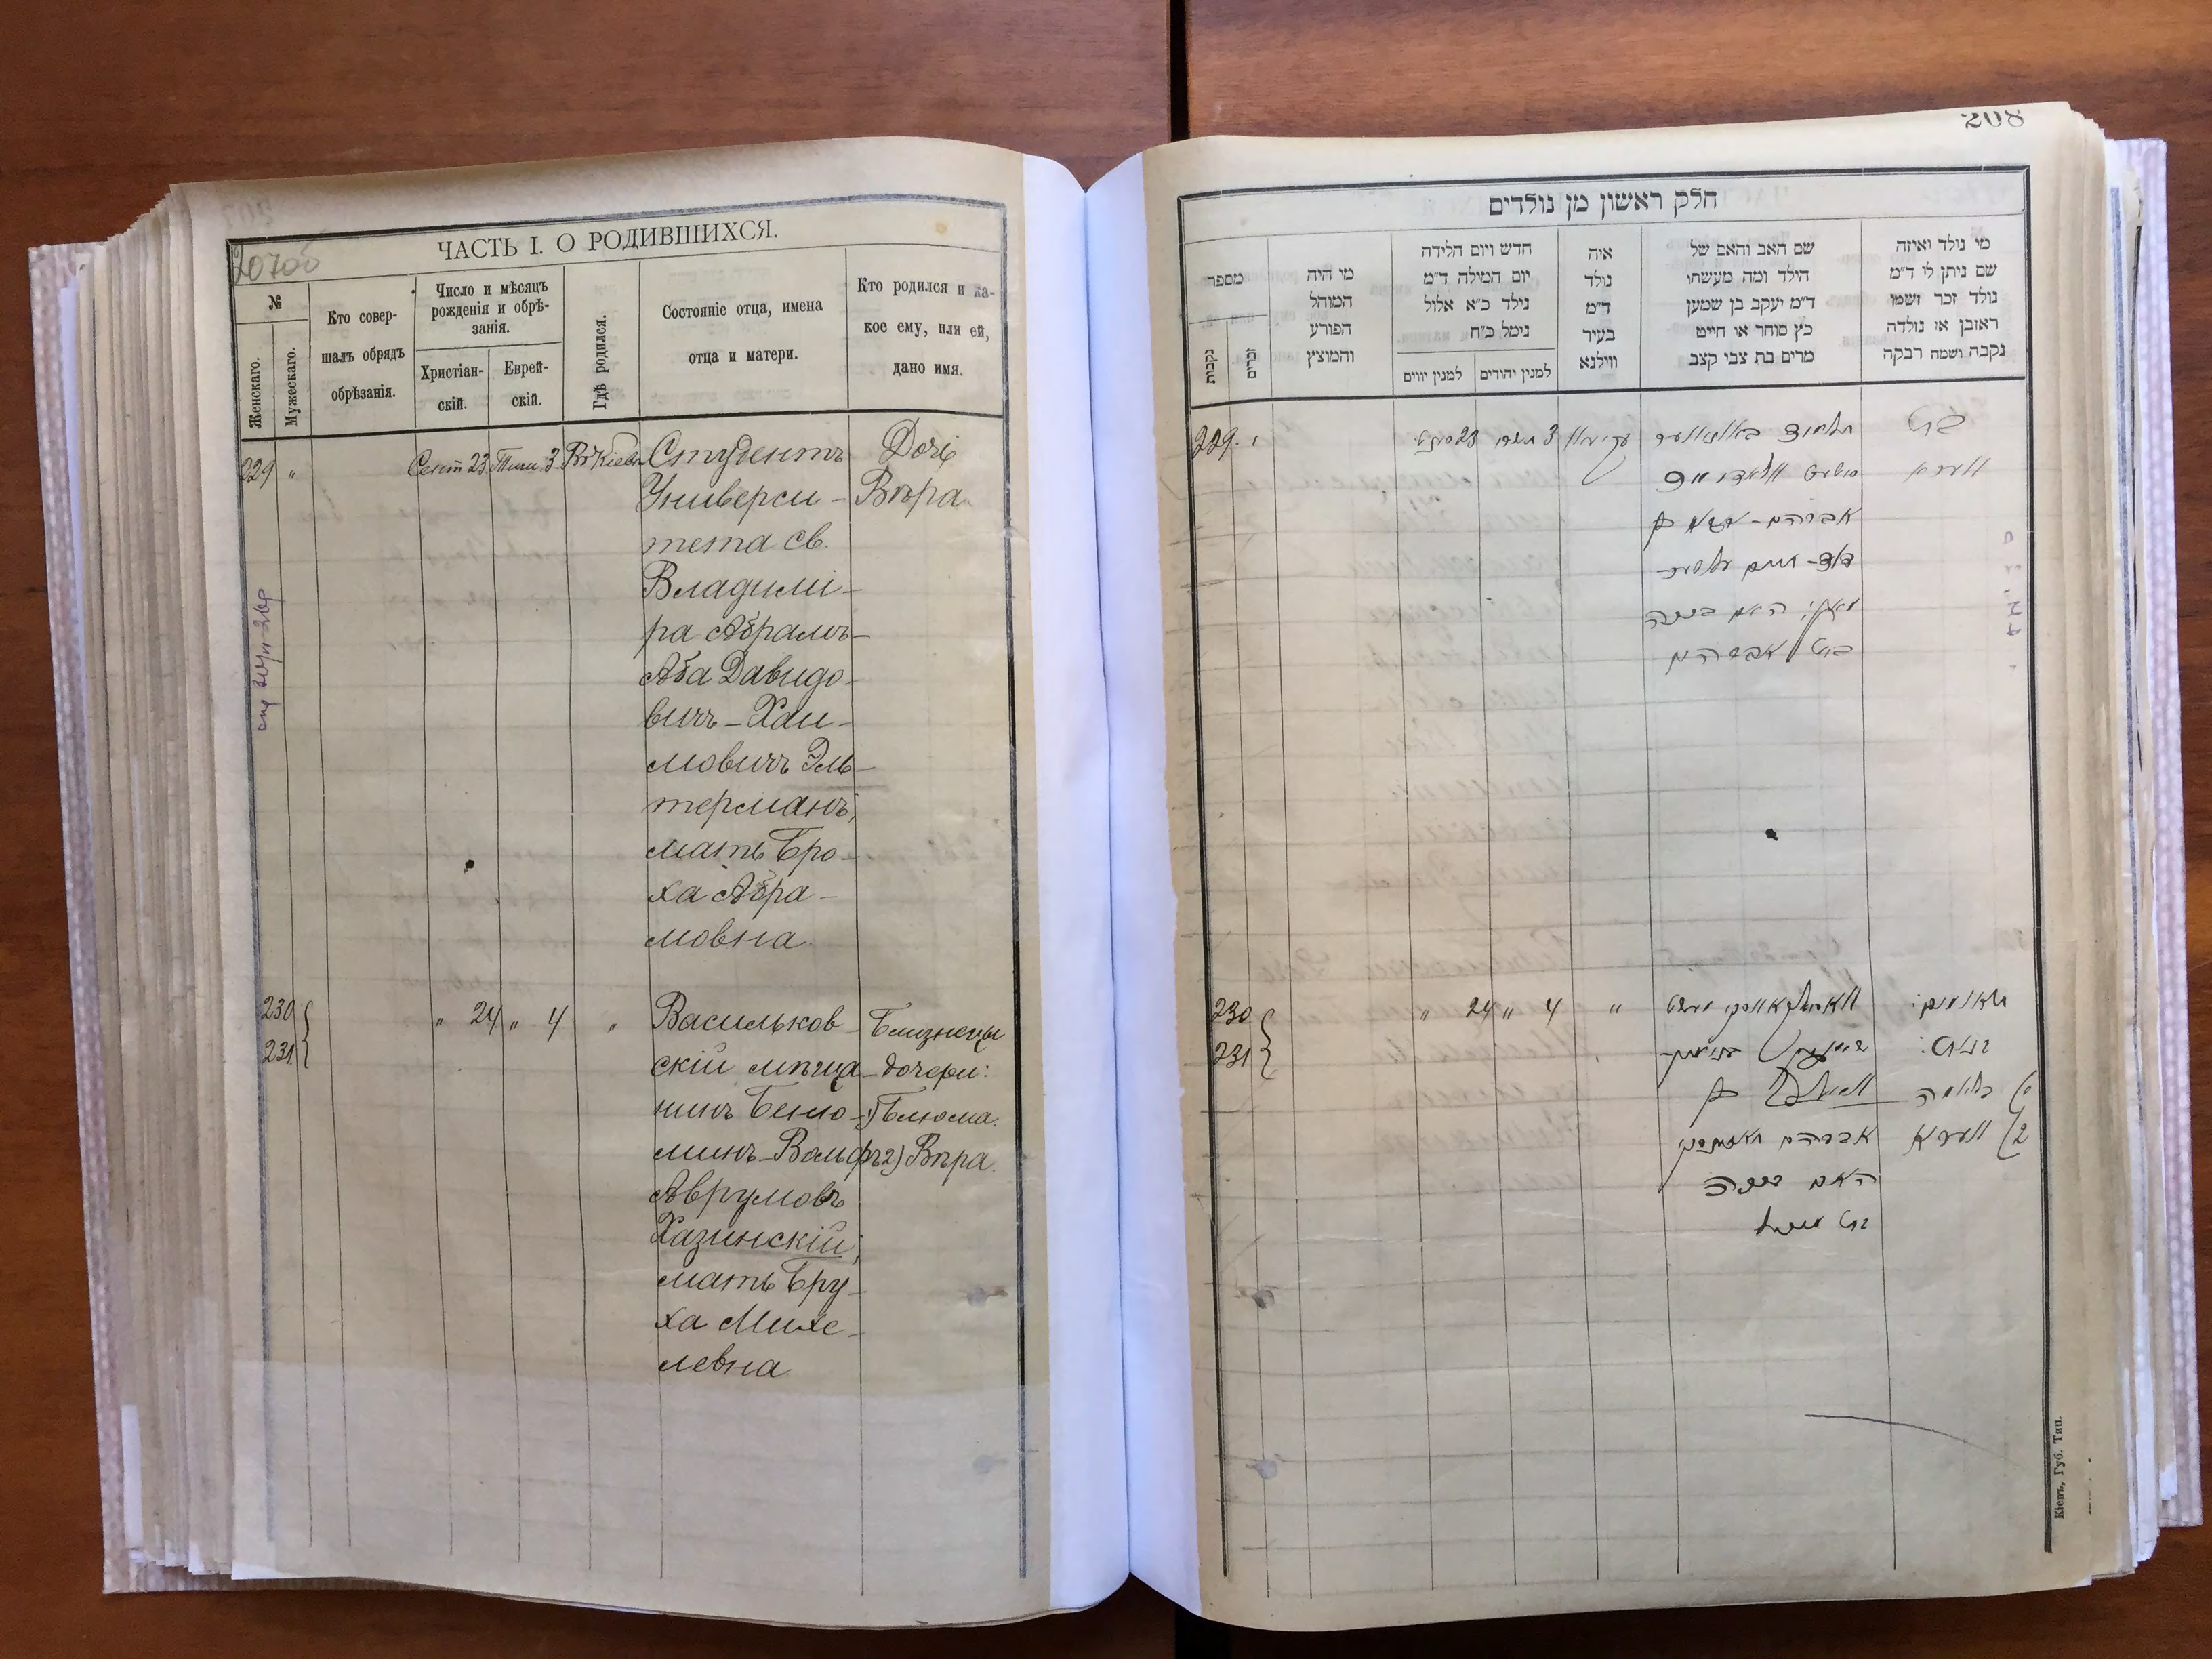 207об
ЧАСТЬ I. О РОДИВШИХСЯ.
№
Женскаго.
Мужескаго.
Кто совер-
шалъ обрядъ
обрѣзанія.
Число и мѣсяцъ
рожденія и обрѣ-
занія.
Христіан-
скій.
Еврей-
скій.
Гдѣ родился.
Состояніе отца, имена
отца и матери.
Кто родился и ка-
кое ему, или ей,
дано имя.
229 " Сент 23 Тиш 3 Въ Кіевѣ
Студентъ
Универси-
тета св.
Владимі-
ра Абрамъ-
Аба Давидо-
вичъ-Хаи-
мовичъ Эль-
терманъ;
мать Бро-
ха Абра-
мовна.
Дочь
Вѣра.
230
231
" 24 " 4 "
Васильков-
скій мѣща-
нинъ Беню-
минъ-Вольфъ
Аврумовъ
Хазинскій;
мать Бру-
ха Михе-
левна.
Близнецы
дочери:
1) Блюма.
2) Вѣра.
208
חלק ראשון מן נולדים
מספר
נקבות
זכרים
מי היה
המוהל
הפורע
והמוצץ
חדש ויום הלידה
יום המילה ד"מ
נילד כ"א אלול
נימל כ"ח
למנין יווים
למנין יהודים
איה
נולד
ד"מ
בעיר
ווילנא
שם האב והאם של
הילד ומה מעשהו
ד"מ יעקב בן שמעון
כץ סוחר או חייט
מרים בת צבי קצב
מי נולד ואיזה
שם ניתן לו ד"מ
נולד זכר ושמו
ראובן או נולדה
נקבה ושמה רבקה
229. 23 3
בת
ווערא
אברהם-אבא בן
דוד-חיים
האם ברכה
בת אברהם
230
231
" 24 " 4 "
תאומים:
בנות:
1) בלומה
2) ווערא
וואלף בן
אברהם
האם ברכה
בת מיכל
Кіевъ, Губ. Тип.